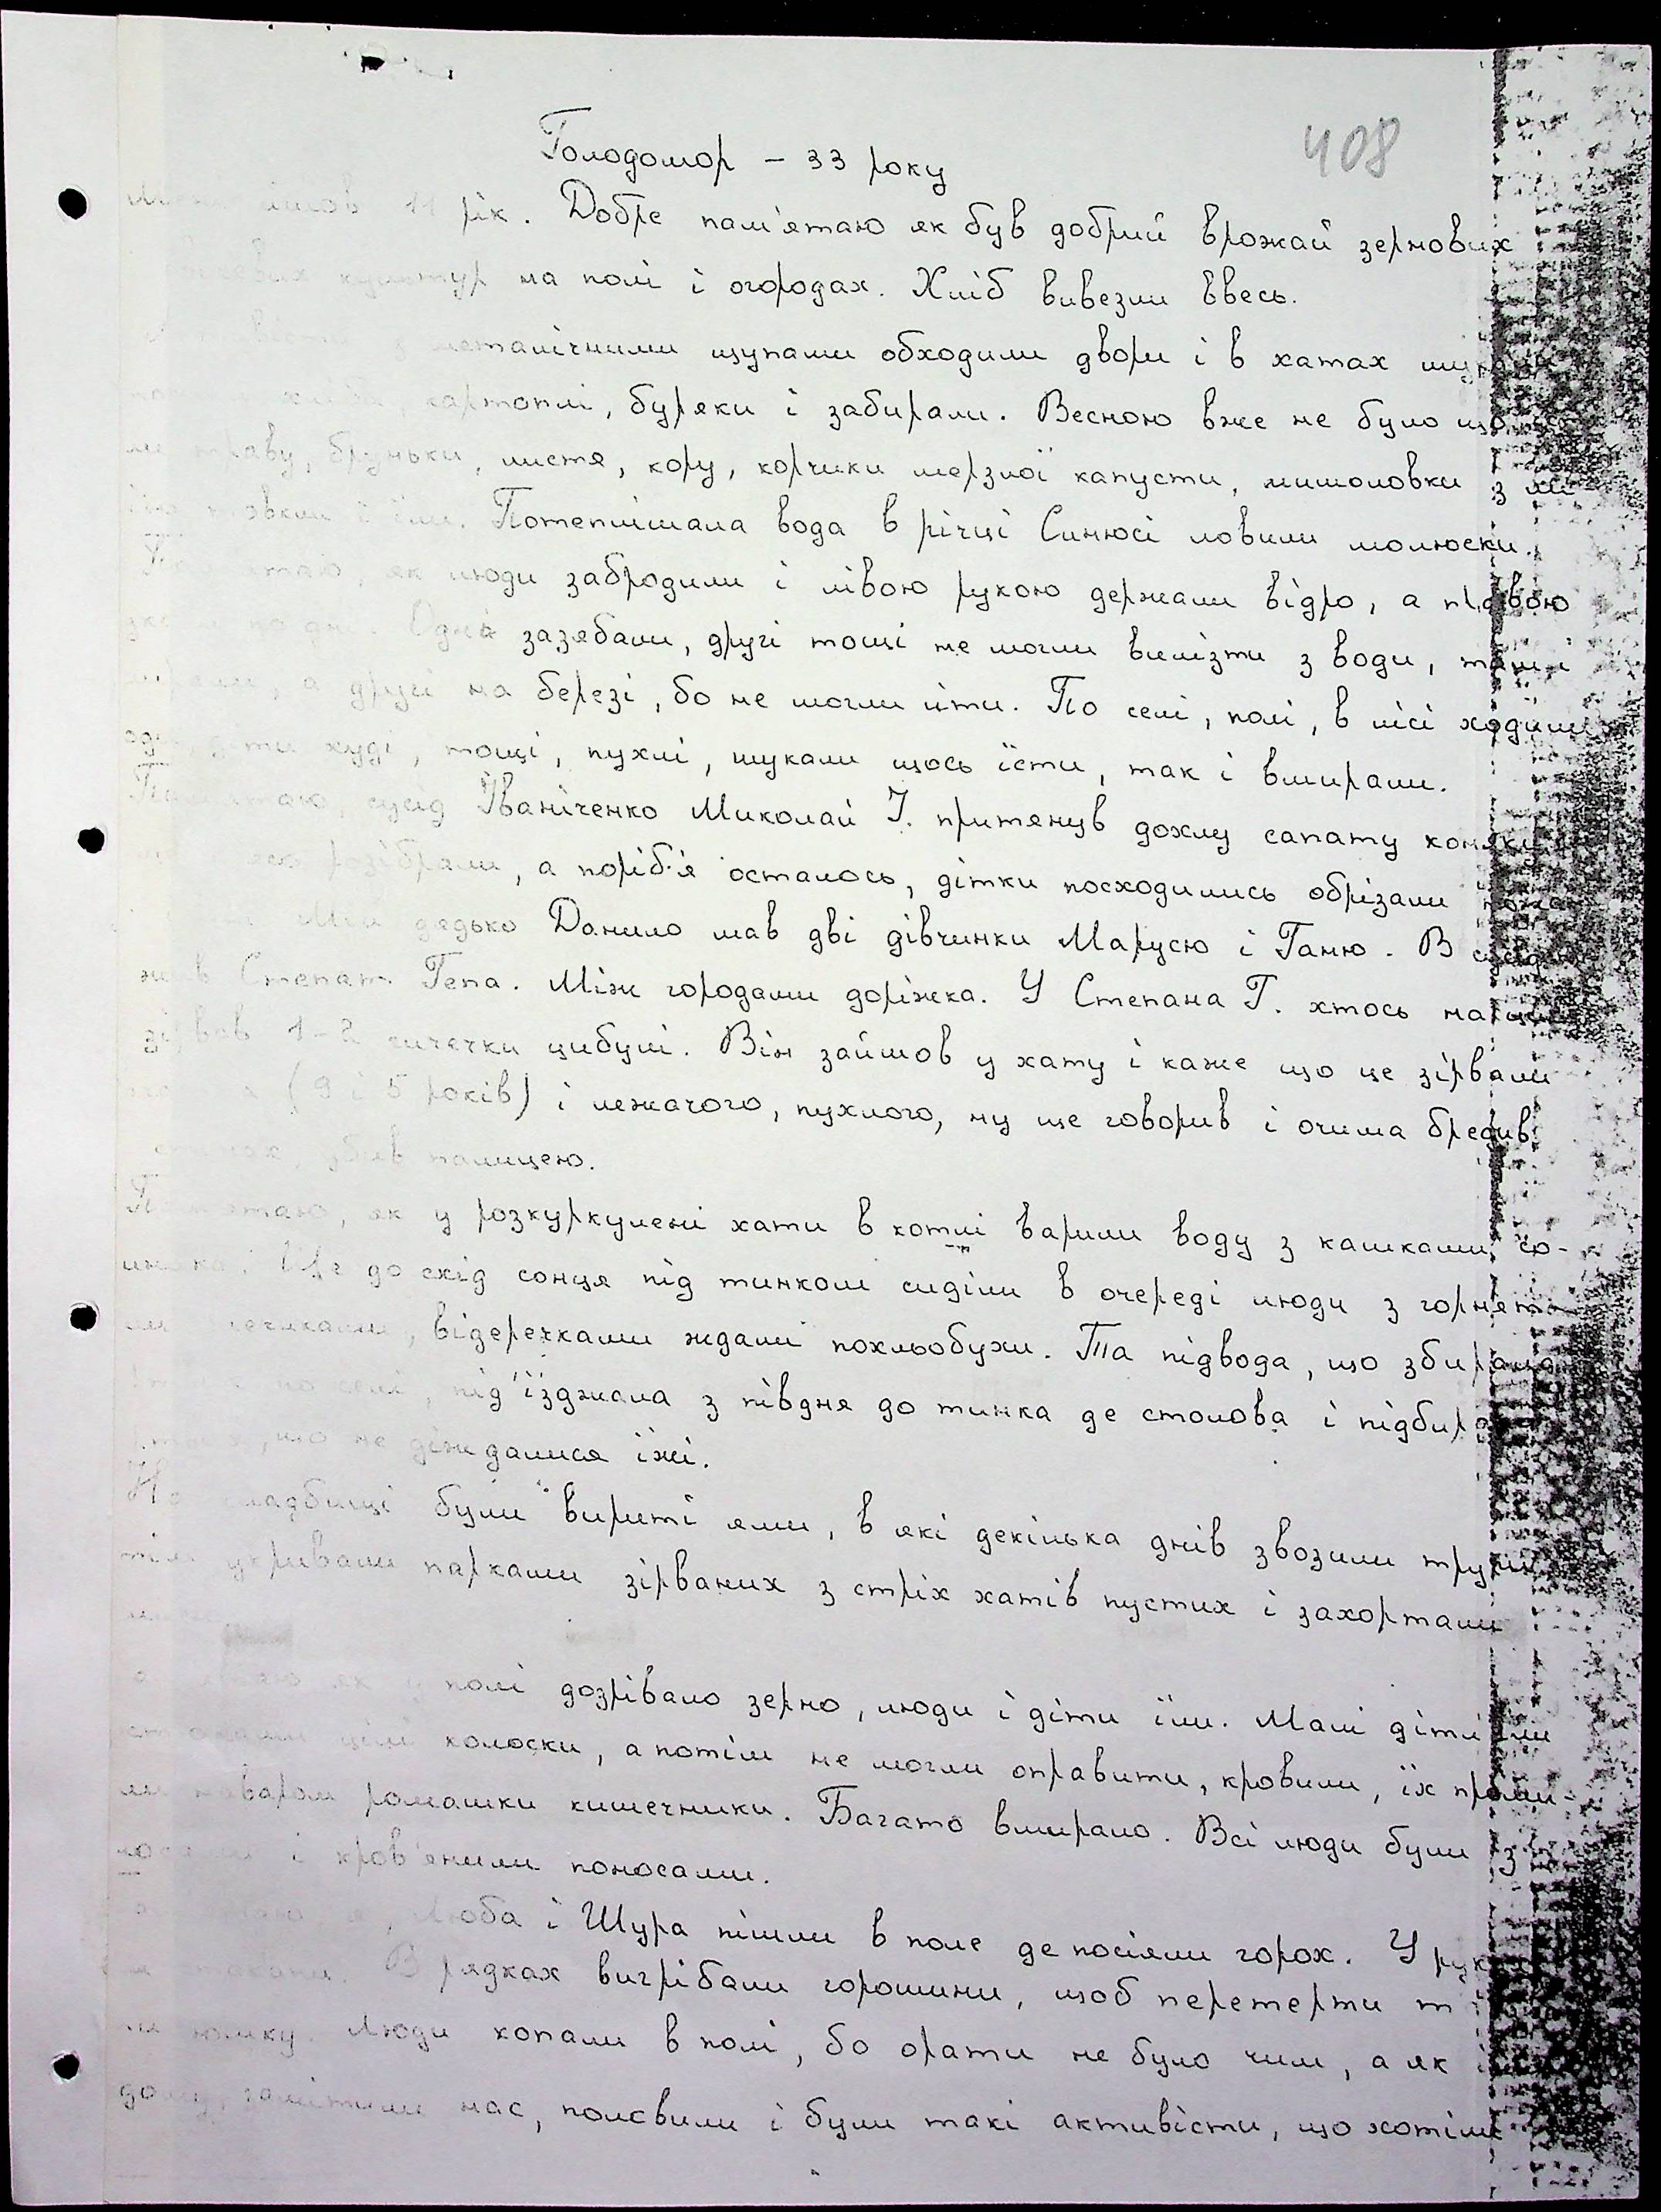 408
Голодомор – 33 року
11 рік. Добре пам'ятаю як був добрий врожай зернових
культур на полі і огородах. Хліб вивезли ввесь.
металічними щупами обходили двори і в хатах
картоплі, буряки і забирали. Весною вже не було
траву, бруньки, листя, кору, корчики мерзлої капусти, мишоловки з
товкли і їли. Потеплішала вода в річці Синюсі ловили молюски.
як люди забродили і лівою рукою держали відро, а правою
Одні зазябали, другі тощі не могли вилізти з води,
а другі на березі, бо не могли йти. По селі, полі, в лісі ходили
худі, тощі, пухлі, шукали щось їсти, так і вмирали.
сусід Іваніченко Миколай І. притянув дохлу сапату коняку
розібрали, а поріб'я осталось, дітки посходились обрізали
Мій дядько Данило мав дві дівчинки Марусю і Ганю. В
жив Степан Гепа. Між городами доріжка. У Степана Г. хтось
зірвав 1-2 гичечки цибулі. Він зайшов у хату і каже що це зірвали
(9 і 5 років) і лежачого, пухлого, ну ще говорив і очима
убив палицею.
Пам'ятаю, як у розкуркулені хати в котлі варили воду з кашками со-
Ще до схід сонця під тинком сиділи в очереді люди з горнят-
відеречками ждали похльобухи. Та підвода, що збирала
по селі, під'їзджала з півдня до тинка де столова і підбира
що не діждалися їжі.
На кладбищі були вириті ями, в які декілька днів звозили
укривали парками зірваних з стріх хатів пустих і захортали
як у полі дозрівало зерно, люди і діти їли. Малі діти їли
цілі колоски, а потім не могли оправити, кровили, їх проми-
ли наваром ромашки кишечники. Багато вмирало. Всі люди були з
і кров'яними поносами.
Люба і Шура пішли в поле де посіяли горох. У
В рядках вигрібали горошини, щоб перетерти
юшку. Люди копали в полі, бо орати не було чим, а як
замітили нас, половили і були такі активісти, що хотіли